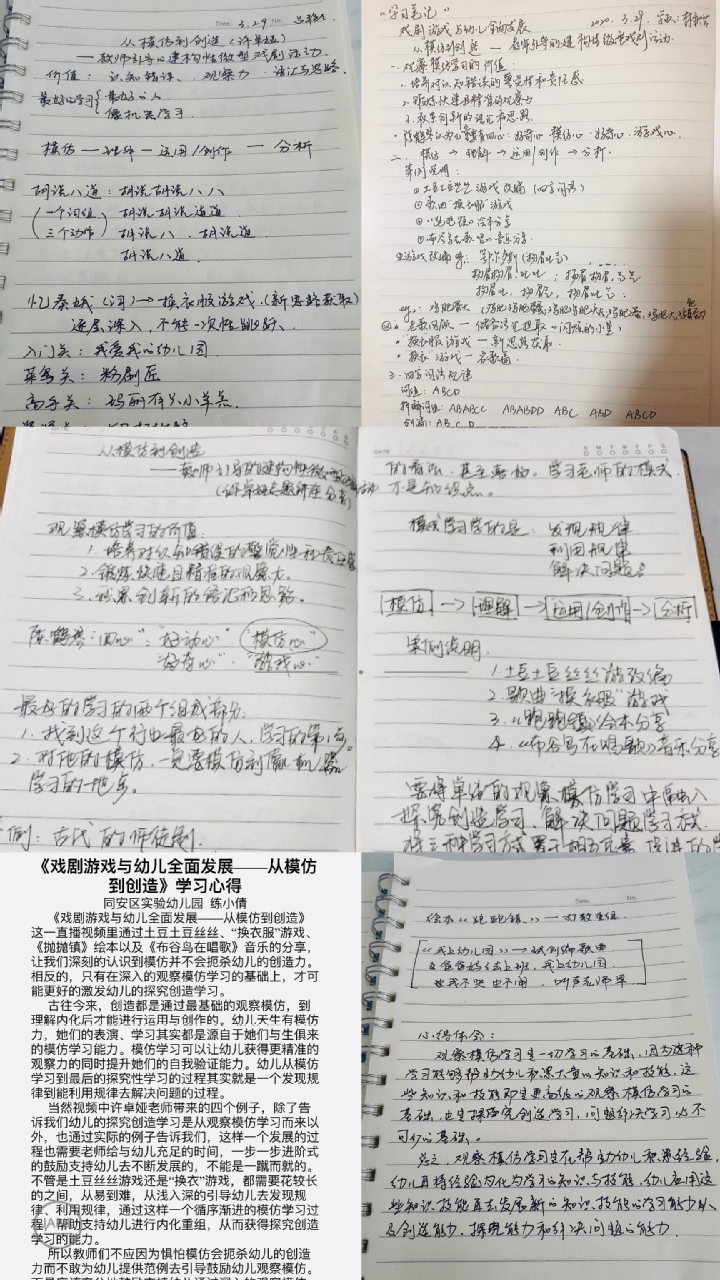 3.29
从模仿到创造(许卓娅)
——教师引导的建构性微型戏剧活动.
价值: 认知错误、观察力、语汇与思路.
最好的学习 最好的人
像机器学习
模仿 — 理解 — 运用/创作 — 分析
胡说八道: 胡说胡说八八
(一个词组) 胡说胡说道道
(三个动作) 胡说八、胡说道
胡说八道.
忆秦娥(词)→换衣服游戏.(新思路获取)
逐层深入,不能一次性跳跃.
入门关: 我爱我的幼儿园
菜鸟关: 粉刷匠
高手关: 玛丽有只小羊羔.
"学习笔记"
戏剧游戏与幼儿全面发展 2020.3.29
从模仿到创造 — 教师引导的建构性微型戏剧活动.
一. 观察模仿学习的价值:
1. 培养对认知错误的警觉性和责任感
2. 锻炼快速且精准的观察力
3. 积累创新的语汇和思路.
二. 模仿 → 理解 → 运用/创作 → 分析.
案例说明:
① 土豆土豆丝丝 游戏改编
② 歌曲"换衣服"游戏
③ "跑跑镇"绘本分享
④ 布谷鸟在唱歌 音乐分享.
词组: ABCD
ABABCC ABABDD ABC ABD ABCD
从模仿到创造
——教师引导的建构性微型戏剧活动
(许卓娅专题讲座分享)
观察模仿学习的价值:
1. 培养对认知错误的警觉性和责任感
2. 锻炼快速且精准的观察力.
3. 积累创新的语汇和思路.
陈鹤琴:"四心":"好动心"."模仿心"
"好奇心"."游戏心"
最好的学习的两个组成部分.
1. 找到这个行业最好的人,学习的第1步。
2. 对他的模仿.一定要模仿到像机器
学习的地步。
例: 古代的师徒制.
学习老师的模式,
不是的终点。
模式学习学的是: 发现规律
利用规律
解决问题。
模仿 → 理解 → 运用/创作 → 分析
案例说明.
1. 土豆土豆丝丝游戏改编
2. 歌曲"换衣服"游戏
3. 《跑跑镇》绘本分享
4. 《布谷鸟在唱歌》音乐分享
要将单纯的观察模仿学习中常嵌入
探究创造学习、解决问题学习方式.
《戏剧游戏与幼儿全面发展——从模仿
到创造》学习心得
同安区实验幼儿园 练小倩
《戏剧游戏与幼儿全面发展——从模仿到创造》
这一直播视频里通过土豆土豆丝丝、“换衣服”游戏、
《抛抛镇》绘本以及《布谷鸟在唱歌》音乐的分享,
让我们深刻的认识到模仿并不会扼杀幼儿的创造力。
相反的,只有在深入的观察模仿学习的基础上,才可
能更好的激发幼儿的探究创造学习。
古往今来,创造都是通过最基础的观察模仿,到
理解内化后才能进行运用与创作的。幼儿天生有模仿
力,她们的表演、学习其实都是源自于她们与生俱来
的模仿学习能力。模仿学习可以让幼儿获得更精准的
观察力的同时提升她们的自我验证能力。幼儿从模仿
学习到最后的探究性学习的过程其实就是一个发现规
律到能利用规律去解决问题的过程。
当然视频中许卓娅老师带来的四个例子,除了告
诉我们幼儿的探究创造学习是从观察模仿学习而来以
外,也通过实际的例子告诉我们,这样一个发展的过
程也需要老师给与幼儿充足的时间,一步一步进阶式
的鼓励支持幼儿去不断发展的,不能是一蹴而就的。
不管是土豆丝丝游戏还是“换衣”游戏,都需要花较长
的之间,从易到难,从浅入深的引导幼儿去发现规
律、利用规律,通过这样一个循序渐进的模仿学习过
程,帮助支持幼儿进行内化重组,从而获得探究创造
学习的能力。
所以教师们不应因为惧怕模仿会扼杀幼儿的创造
力而不敢为幼儿提供范例去引导鼓励幼儿观察模仿。
绘本《跑跑镇》—打散重组.
《我上幼儿园》→试创编歌曲
爸爸妈妈去上班,我上幼儿园
也我不哭也不闹,叫声老师早
心得体会:
观察模仿学习是一切学习的基础,因为这种
学习能够帮助幼儿积累大量的知识和技能,这
些知识和技能即是更高级的观察模仿学习的
基础,也是探究创造学习、问题解决学习必不
可少的基础。
总之,观察模仿学习是在帮助幼儿积累经验,
幼儿再将经验内化为学习的知识与技能,幼儿应用这
些知识、技能再去发展新的知识、技能的学习能力以
及创造能力、探究能力和解决问题的能力.